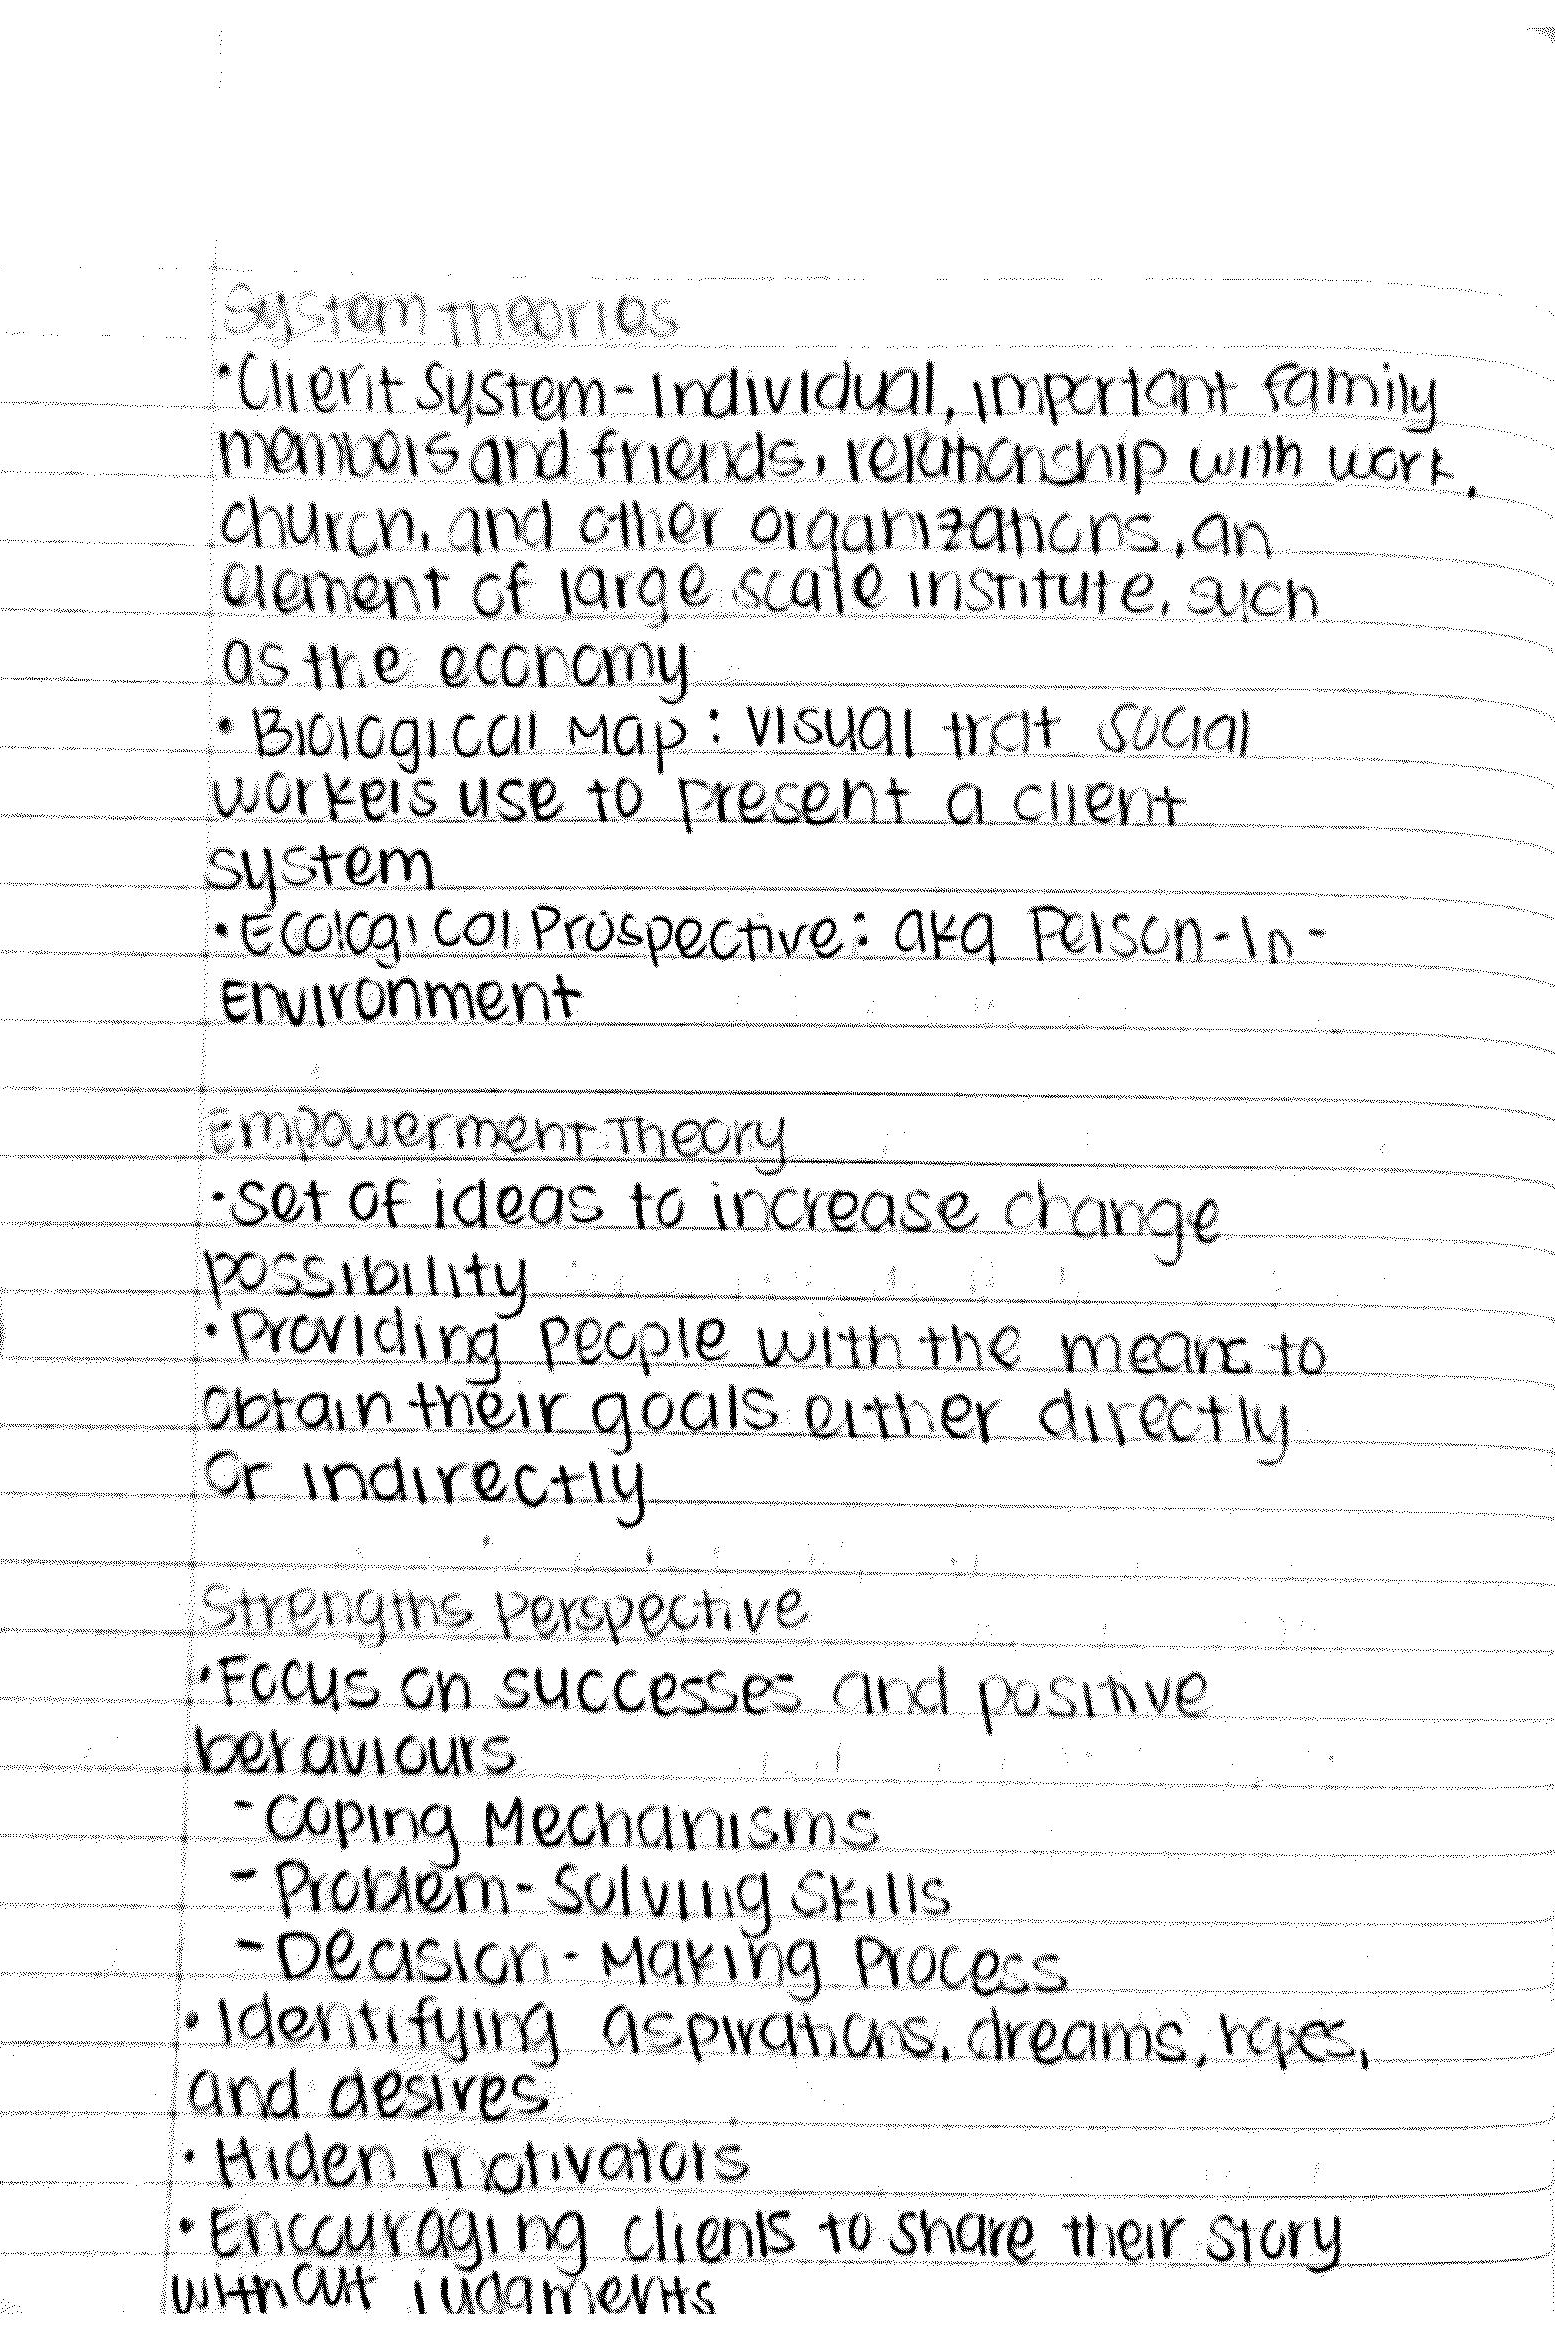 System Theories
•Client System-Individual, important family
members and friends, relationship with work,
church, and other organizations, an
element of large scale institute, such
as the economy
• Biological Map: visual that social
workers use to present a client
system
•Ecological Prospective: aka Person-In-
Environment
Empowerment Theory
•Set of ideas to increase change
possibility
•Providing people with the means to
obtain their goals either directly
or indirectly
Strengths Perspective
•Focus on successes and positive
behaviours
-Coping Mechanisms
-Problem-Solving Skills
-Decision-Making Process
•Identifying aspirations, dreams, hopes,
and desires
• Hiden motivators
•Encouraging clients to share their story
without judgments